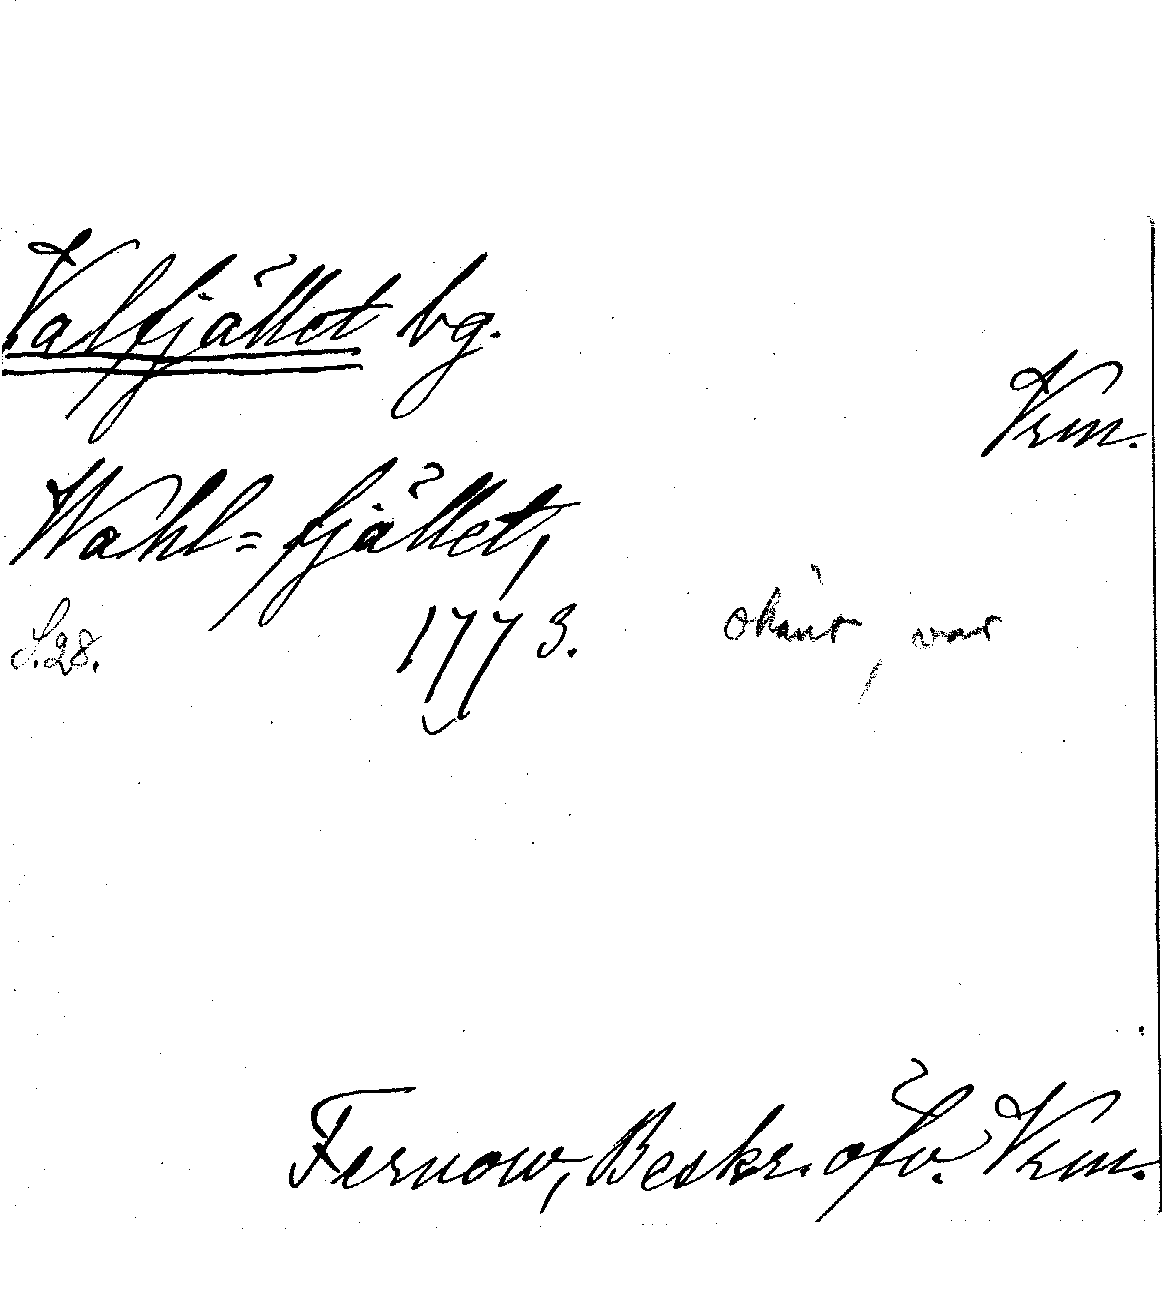 Valfjället bg.
Vrm.
Wahl=fjället,
S.28. 1773. okänt, var
Fernow, Beskr. öfv. Vrm.